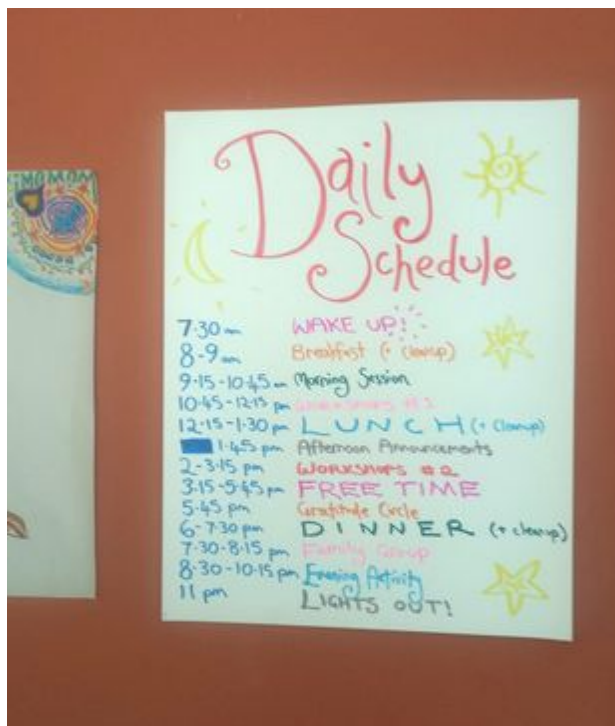 Daily
Schedule
7.30 am WAKE UP!
8-9 am Breakfast (+ cleanup)
9.15-10.45 am Morning Session
10.45-12.15 pm WORKSHOPS #1
12.15-1.30 pm LUNCH (+ cleanup)
1.45 pm Afternoon Announcements
2-3.15 pm WORKSHOPS #2
3.15-5.45 pm FREE TIME
5.45 pm Gratitude Circle
6-7.30 pm DINNER (+ cleanup)
7.30-8.15 pm Family Group
8.30-10.15 pm Evening Activity
11 pm LIGHTS OUT!